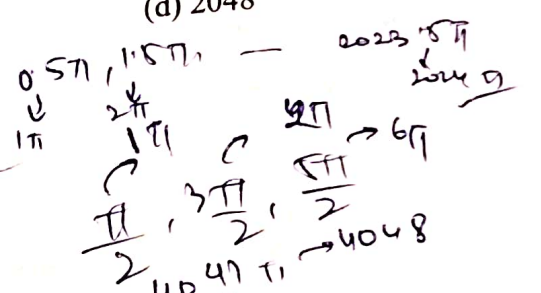 (d) 2048
0.5π, 1.5π, — 2023.5π
1π 2π 2024π
1π 2π → 6π
π/2, 3π/2, 5π/2
4047π → 4048